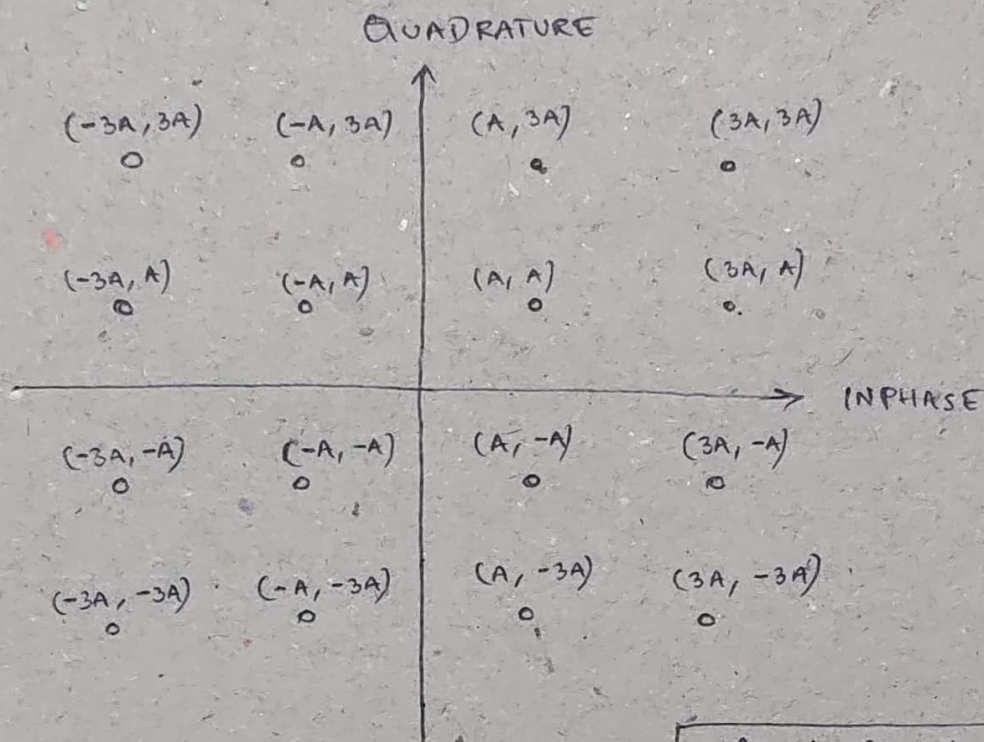 QUADRATURE
(-3A, 3A) (-A, 3A) (A, 3A) (3A, 3A)
(-3A, A) (-A, A) (A, A) (3A, A)
INPHASE
(-3A, -A) (-A, -A) (A, -A) (3A, -A)
(-3A, -3A) (-A, -3A) (A, -3A) (3A, -3A)